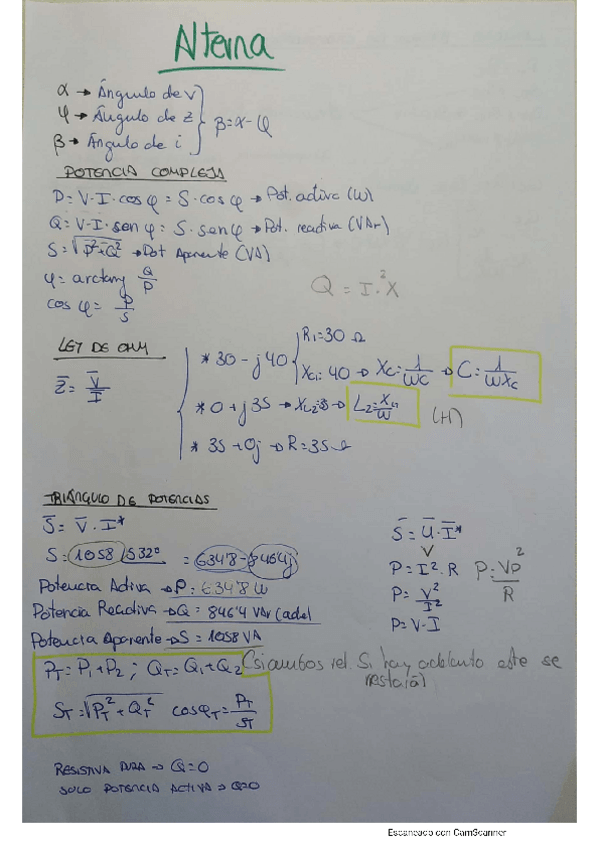 Alterna
α → Ángulo de v
φ → Ángulo de z
β → Ángulo de i
β = α - φ
POTENCIA COMPLEJA
P = V·I·cos φ = S·cos φ → Pot. activa (W)
Q = V·I·sen φ = S·sen φ → Pot. reactiva (VAr)
S = √P²+Q² → Pot Aparente (VA)
φ = arctang Q/P
cos φ = P/S
Q = I²·X
LEY DE OHM
Z̄ = V̄/I
* 30 - j40
R1 = 30 Ω
Xc1 = 40 → Xc = 1/WC → C = 1/WXc
* 0 + j35 → XL2 = 35 → L2 = XL/W (H)
* 35 + 0j → R = 35 Ω
TRIÁNGULO DE POTENCIAS
S̄ = V̄·I*
S = 1058 |53'2º = 634'8 - 846'4j
Potencia Activa → P = 634'8 W
Potencia Reactiva → Q = 846'4 VAr (adel
Potencia Aparente → S = 1058 VA
S̄ = Ū·I̅*
V
P = I²·R
P = Vp²/R
P = V²/I²
P = V·I
PT = P1 + P2 ; QT = Q1 + Q2 (si ambos rel. Si hay adelanto este se
restará)
ST = √PT² + QT² cos φT = PT/ST
RESISTIVA PURA → Q = 0
SOLO POTENCIA ACTIVA → Q = 0
Escaneado con CamScanner